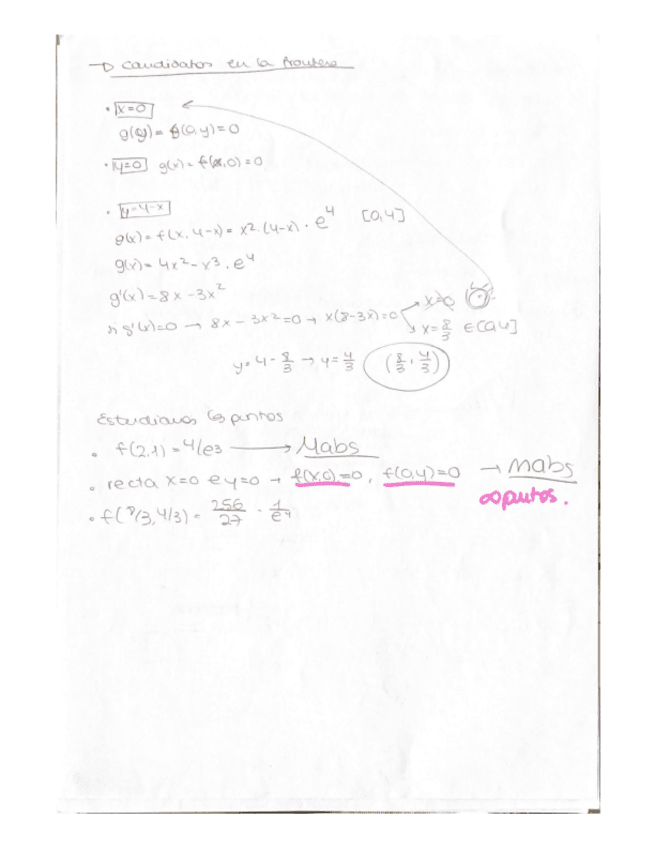 → Candidatos en la frontera
• x=0
g(y) = f(0,y) = 0
• y=0 g(x) = f(x,0) = 0
• y=4-x
g(x) = f(x, 4-x) = x²·(4-x)·e⁴ [0,4]
g(x) = 4x² - x³·e⁴
g'(x) = 8x - 3x²
si g'(x)=0 → 8x - 3x² = 0 → x(8-3x)=0 x=0
x = 8/3 ∈ [0,4]
y = 4 - 8/3 → y = 4/3 (8/3, 4/3)
Estudiamos los puntos
• f(2,1) = 4/e3 → Mabs
• recta x=0 e y=0 → f(x,0)=0, f(0,y)=0 → mabs
∞ puntos.
• f(8/3, 4/3) = 256/27 · 1/e⁴